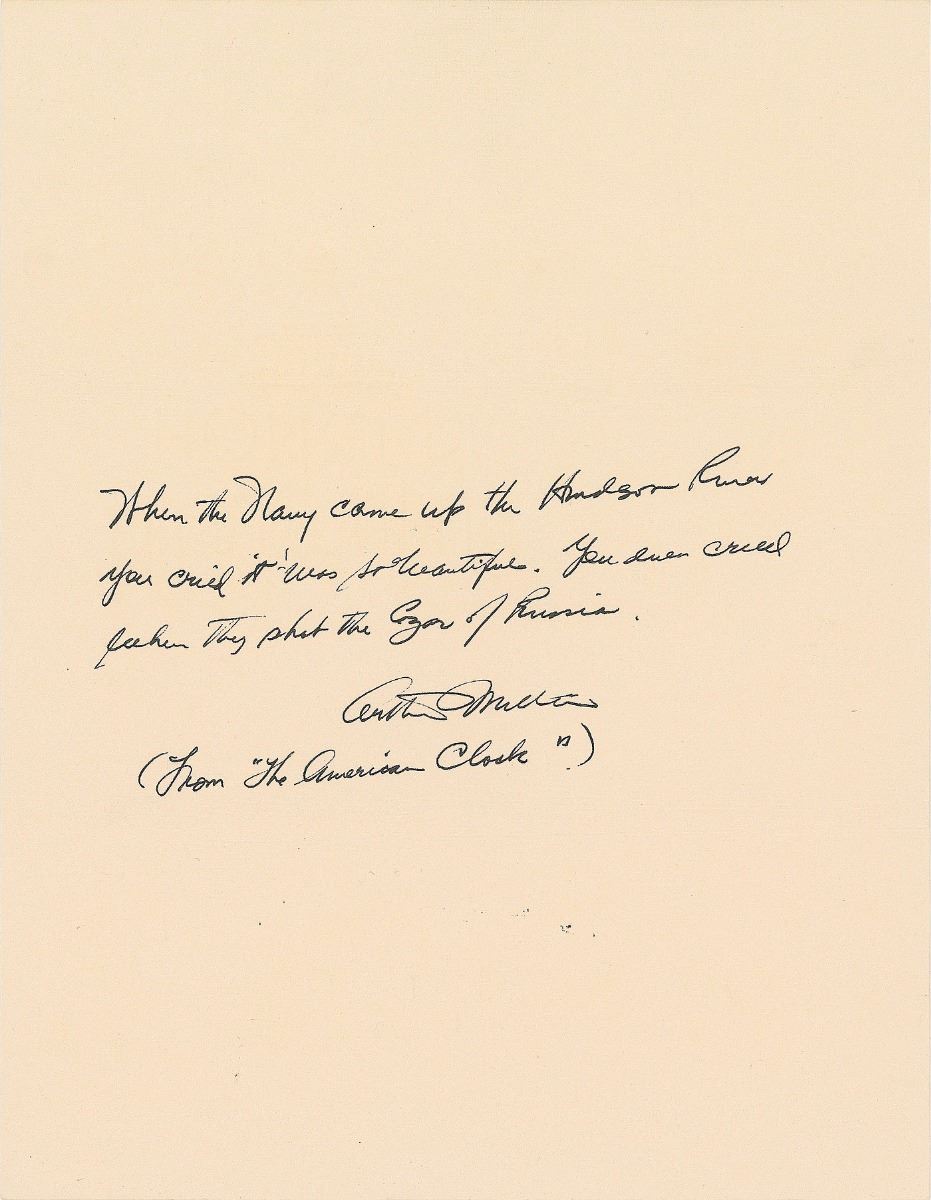 When the Navy came up the Hudson River
you cried it was so beautiful. You even cried
when they shot the Czar of Russia.
Arthur Miller
(From "The American Clock".)